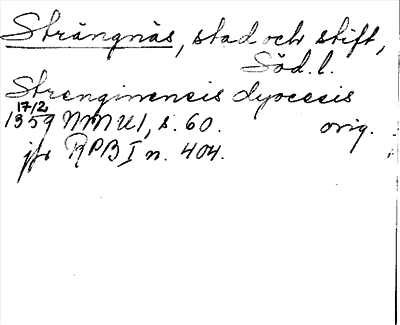 Strängnäs, stad och stift,
Söd. l.
Strenginensis dyocesis
17/2
1359 NMU1, s. 60. orig.
jfr RPB I n. 404.